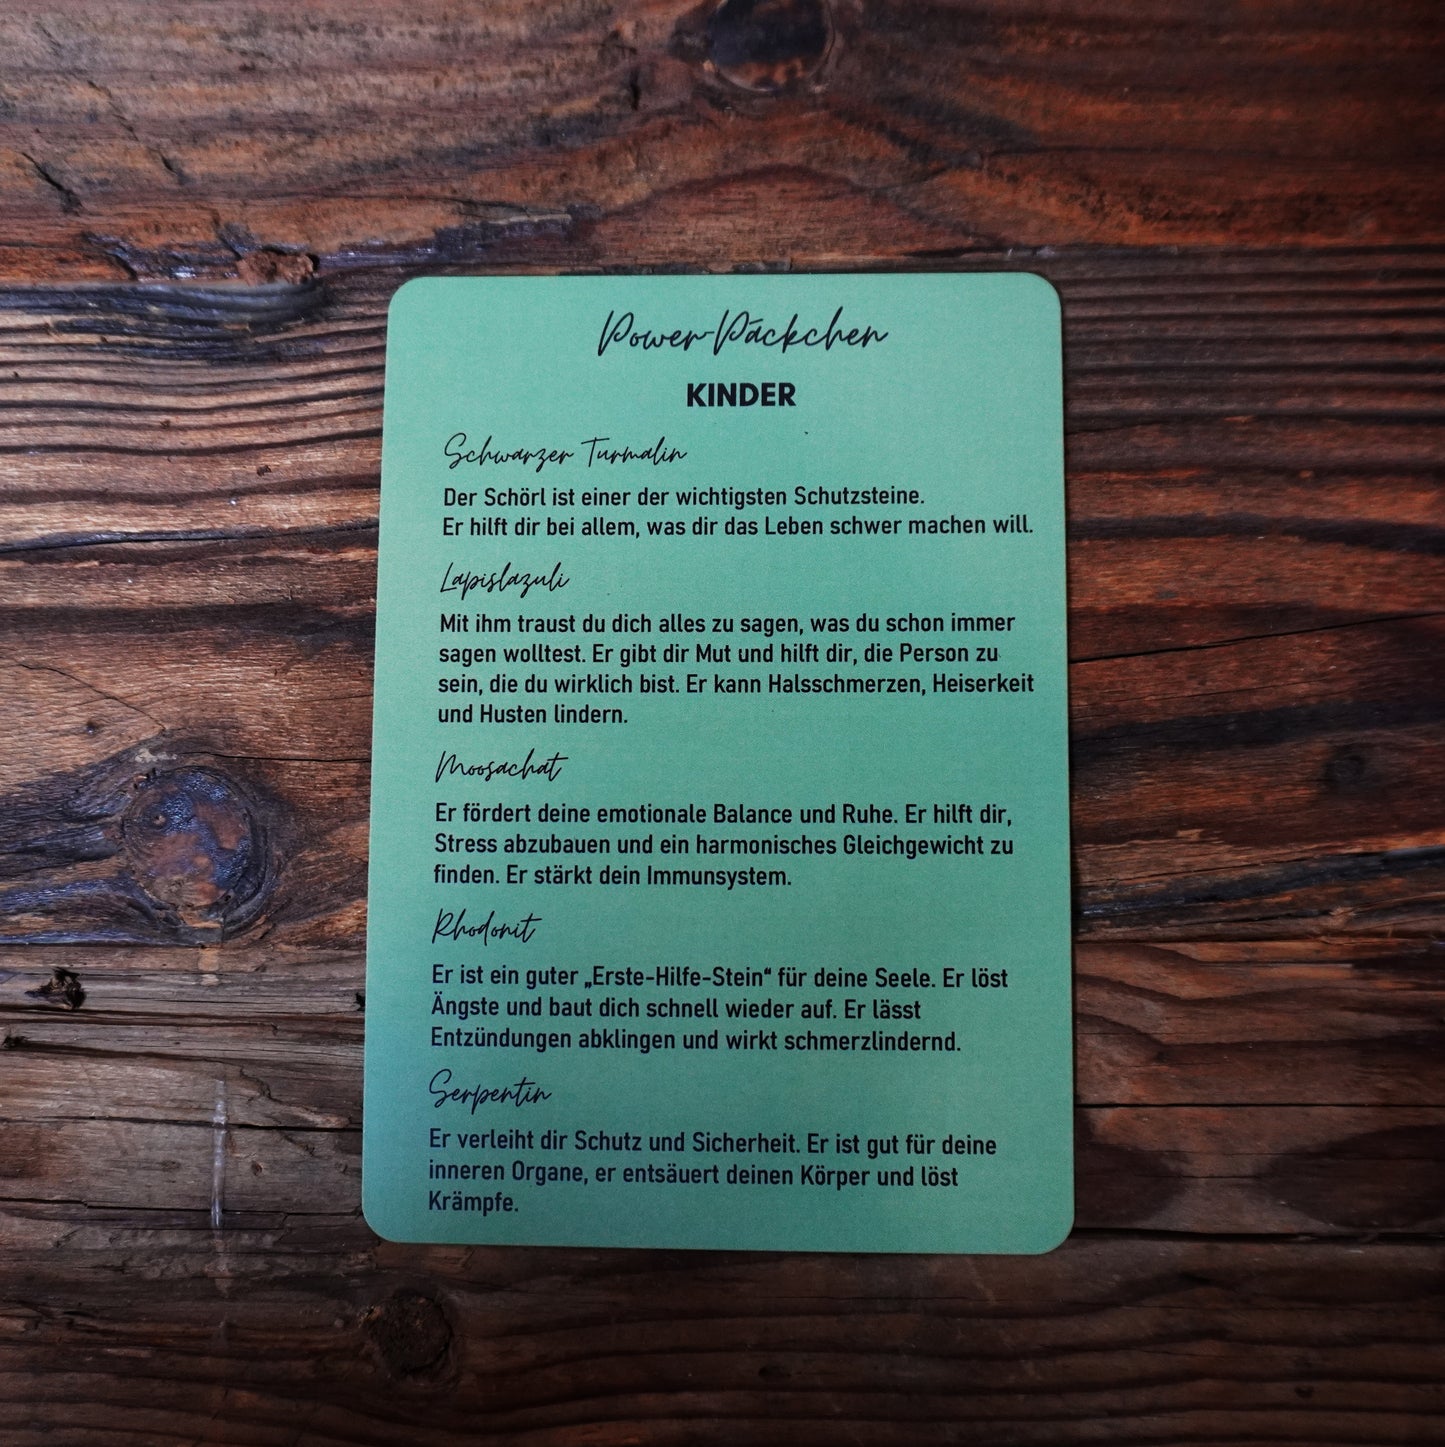 Power-Päckchen
KINDER
Schwarzer Turmalin
Der Schörl ist einer der wichtigsten Schutzsteine.
Er hilft dir bei allem, was dir das Leben schwer machen will.
Lapislazuli
Mit ihm traust du dich alles zu sagen, was du schon immer
sagen wolltest. Er gibt dir Mut und hilft dir, die Person zu
sein, die du wirklich bist. Er kann Halsschmerzen, Heiserkeit
und Husten lindern.
Moosachat
Er fördert deine emotionale Balance und Ruhe. Er hilft dir,
Stress abzubauen und ein harmonisches Gleichgewicht zu
finden. Er stärkt dein Immunsystem.
Rhodonit
Er ist ein guter „Erste-Hilfe-Stein“ für deine Seele. Er löst
Ängste und baut dich schnell wieder auf. Er lässt
Entzündungen abklingen und wirkt schmerzlindernd.
Serpentin
Er verleiht dir Schutz und Sicherheit. Er ist gut für deine
inneren Organe, er entsäuert deinen Körper und löst
Krämpfe.